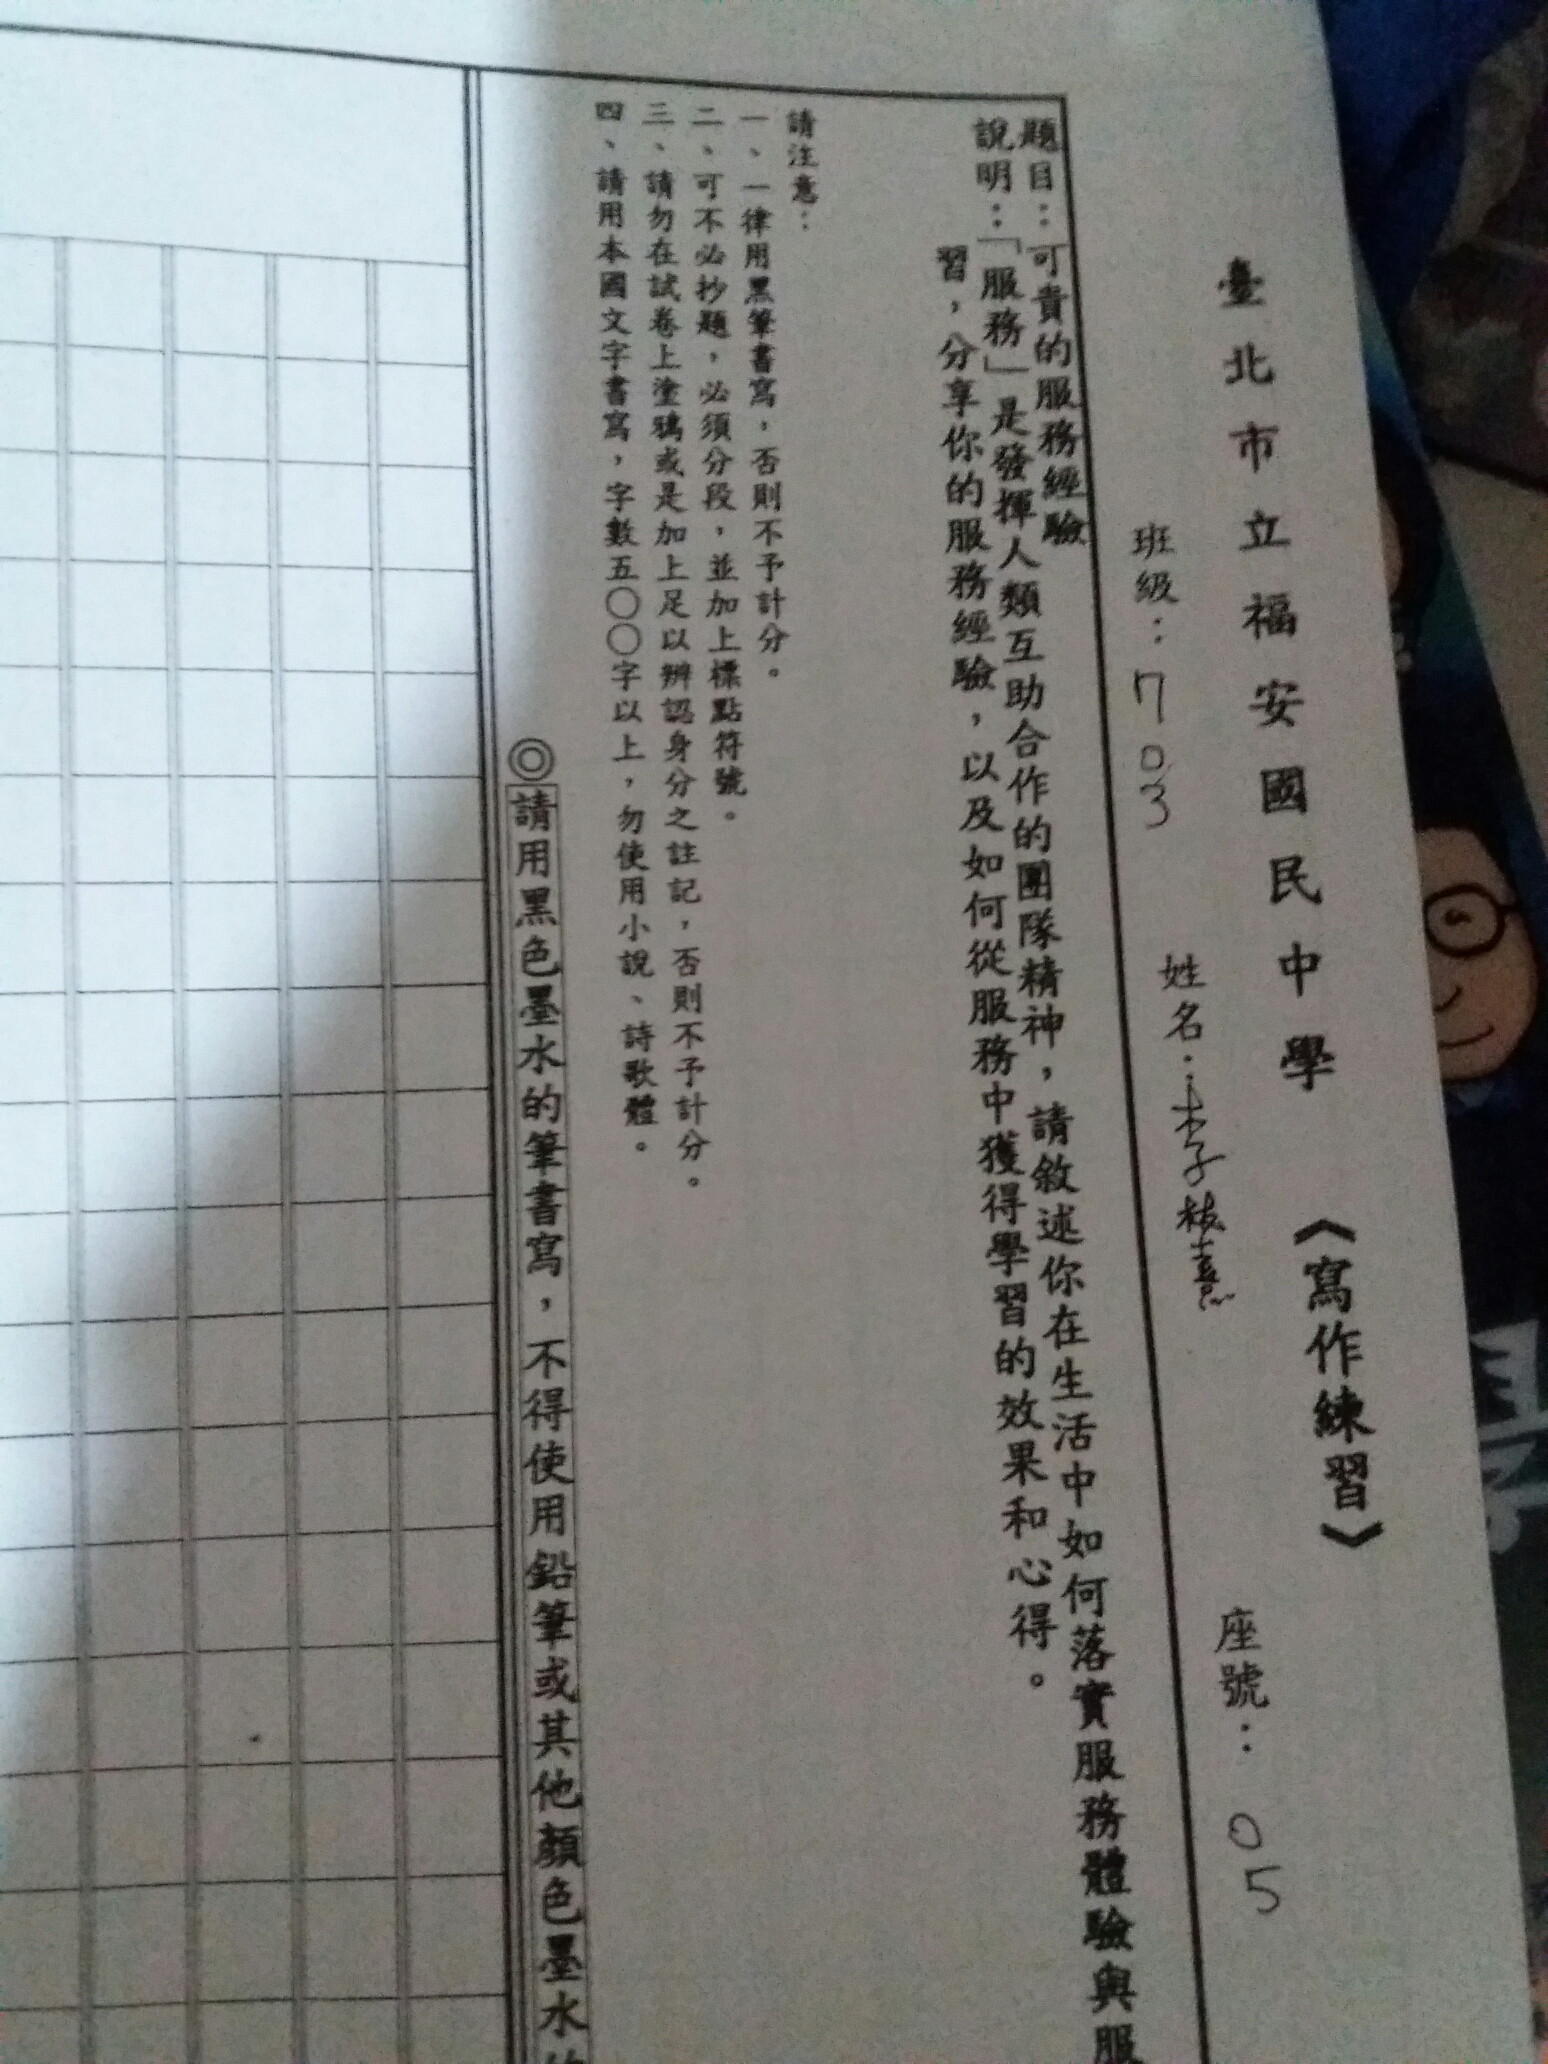 臺北市立福安國民中學 《寫作練習》
班級：703 姓名：朱子 座號：05
題目：可貴的服務經驗
說明：「服務」是發揮人類互助合作的團隊精神，請敘述你在生活中如何落實服務體驗與服
習，分享你的服務經驗，以及如何從服務中獲得學習的效果和心得。
請注意：
一、一律用黑筆書寫，否則不予計分。
二、可不必抄題，必須分段，並加上標點符號。
三、請勿在試卷上塗鴉或是加上足以辨認身分之註記，否則不予計分。
四、請用本國文字書寫，字數五〇〇字以上，勿使用小說、詩歌體。
◎請用黑色墨水的筆書寫，不得使用鉛筆或其他顏色墨水的